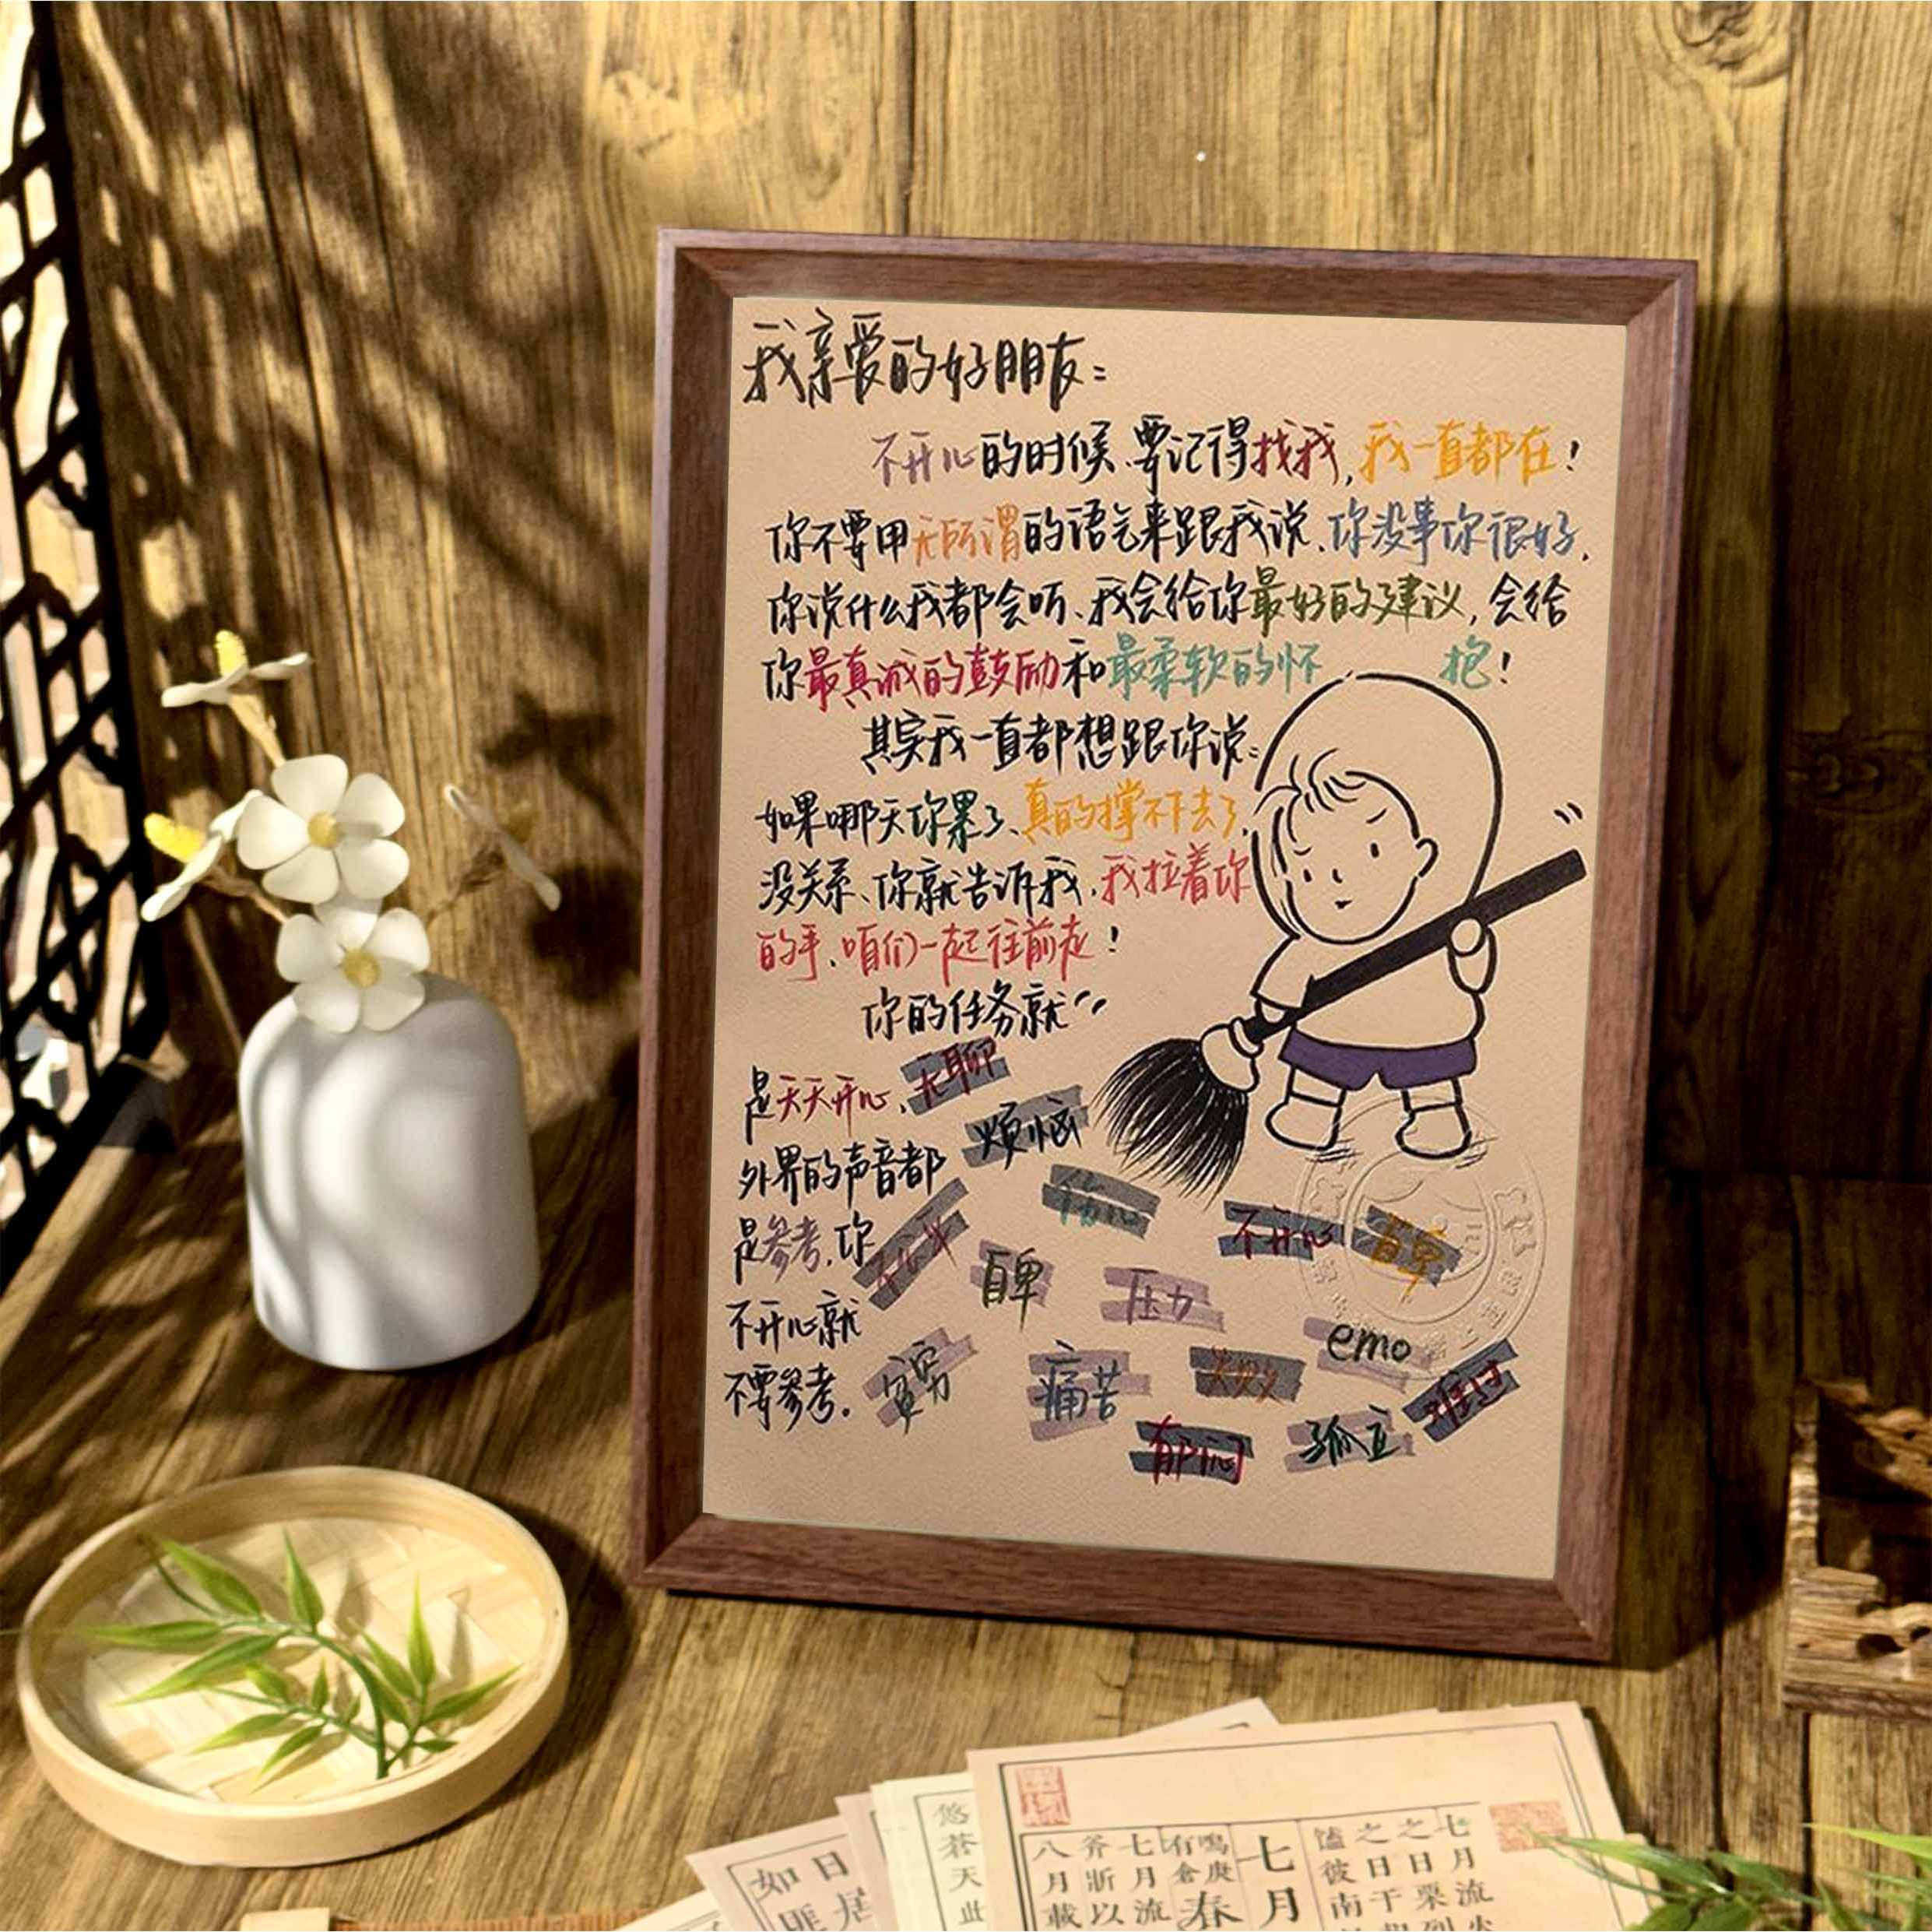 我亲爱的好朋友：
不开心的时候、要记得找我，我一直都在！
你不要用无所谓的语气来跟我说、你没事你很好，
你说什么我都会听、我会给你最好的建议，会给
你最真诚的鼓励和最柔软的怀抱！
其实我一直都想跟你说：
如果哪天你累了、真的撑不下去了，
没关系、你就告诉我，我拉着你
的手、咱们一起往前走！
你的任务就
是天天开心、
外界的声音都
是参考，你
不开心就
不要参考。
无聊
烦恼
伤心
不开心
自卑
自卑
压力
emo
贫穷
痛苦
失败
难过
郁闷
孤立
七月流
之日栗
之日于
馌彼南
七月
鳴
有
春
七月流
斧斨以
八月載
悠蒼天此
日居
如匪